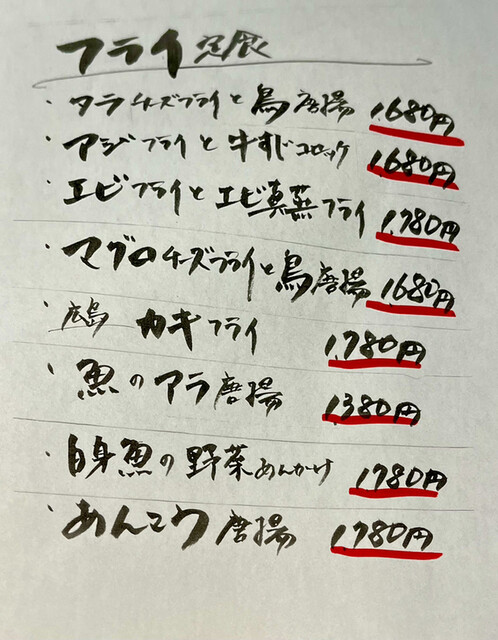 フライ定食
・タラチーズフライと鳥唐揚 1,680円
・アジフライと牛すじコロッケ 1,680円
・エビフライとエビ真蒸フライ 1,780円
・マグロチーズフライと鳥唐揚 1,680円
・広島カキフライ 1,780円
・魚のアラ唐揚 1,380円
・白身魚の野菜あんかけ 1,780円
・あんこう唐揚 1,780円